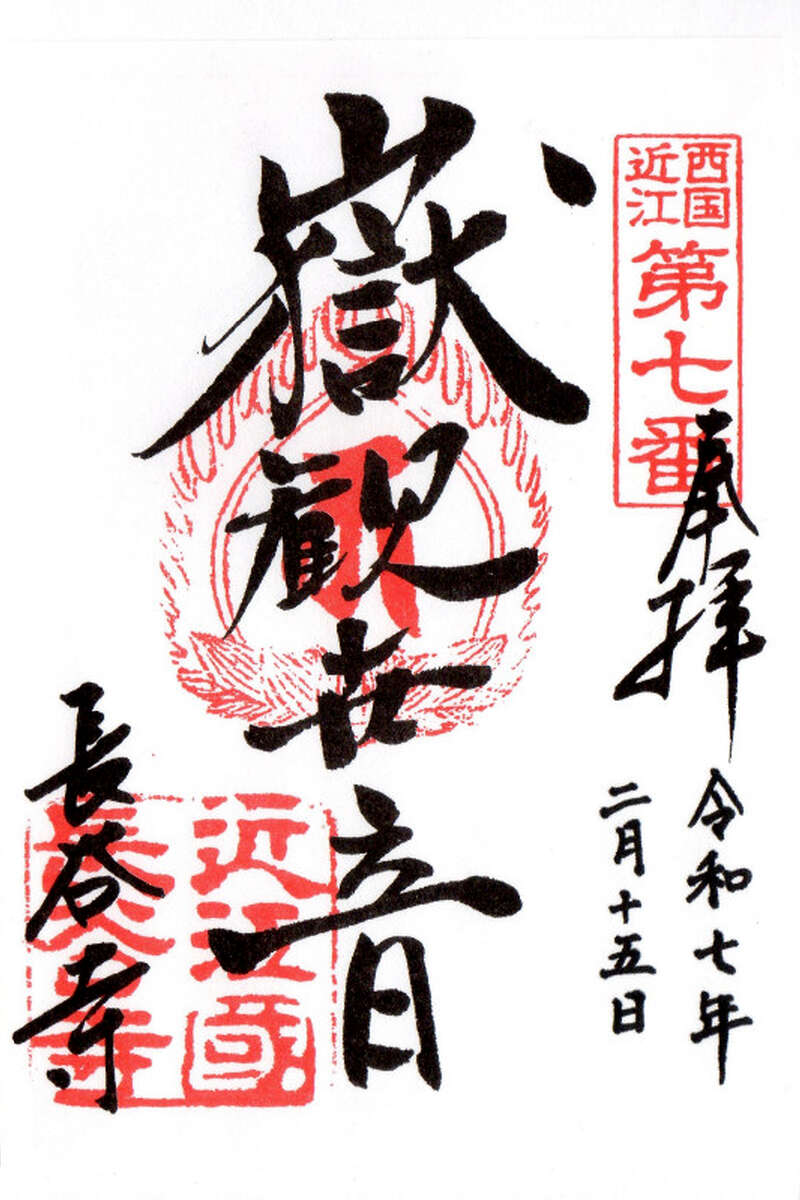 西国
近江
第七番
奉拝
令和七年
二月十五日
嶽観世音
近江國
長谷寺
長谷寺